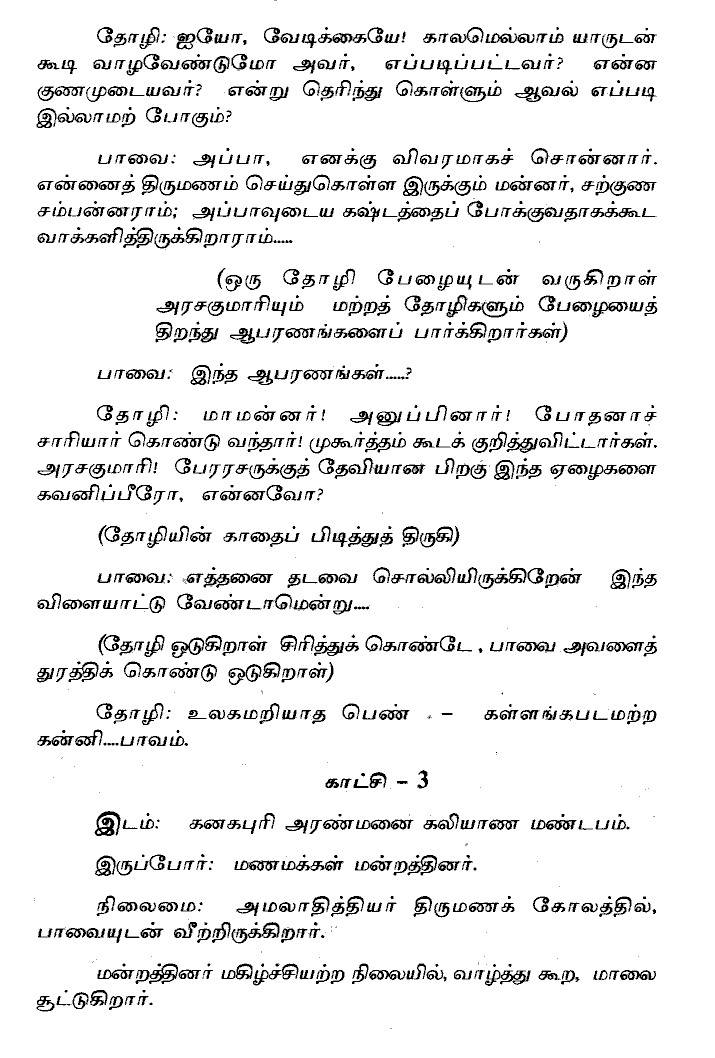 தோழி: ஐயோ, வேடிக்கையே! காலமெல்லாம் யாருடன்
கூடி வாழவேண்டுமோ அவர், எப்படிப்பட்டவர்? என்ன
குணமுடையவர்? என்று தெரிந்து கொள்ளும் ஆவல் எப்படி
இல்லாமற் போகும்?
பாவை: அப்பா, எனக்கு விவரமாகச் சொன்னார்.
என்னைத் திருமணம் செய்துகொள்ள இருக்கும் மன்னர், சற்குண
சம்பன்னராம்; அப்பாவுடைய கஷ்டத்தைப் போக்குவதாகக்கூட
வாக்களித்திருக்கிறாராம்.....
(ஒரு தோழி பேழையுடன் வருகிறாள்
அரசகுமாரியும் மற்றத் தோழிகளும் பேழையைத்
திறந்து ஆபரணங்களைப் பார்க்கிறார்கள்)
பாவை: இந்த ஆபரணங்கள்.....?
தோழி: மாமன்னர்! அனுப்பினார்! போதனாச்
சாரியார் கொண்டு வந்தார்! முகூர்த்தம் கூடக் குறித்துவிட்டார்கள்.
அரசகுமாரி! பேரரசருக்குத் தேவியான பிறகு இந்த ஏழைகளை
கவனிப்பீரோ, என்னவோ?
(தோழியின் காதைப் பிடித்துத் திருகி)
பாவை: எத்தனை தடவை சொல்லியிருக்கிறேன் இந்த
விளையாட்டு வேண்டாமென்று....
(தோழி ஓடுகிறாள் சிரித்துக் கொண்டே, பாவை அவளைத்
துரத்திக் கொண்டு ஓடுகிறாள்)
தோழி: உலகமறியாத பெண் – கள்ளங்கபடமற்ற
கன்னி....பாவம்.
காட்சி – 3
இடம்: கனகபுரி அரண்மனை கலியாண மண்டபம்.
இருப்போர்: மணமக்கள் மன்றத்தினர்.
நிலைமை: அமலாதித்தியர் திருமணக் கோலத்தில்,
பாவையுடன் வீற்றிருக்கிறார்.
மன்றத்தினர் மகிழ்ச்சியற்ற நிலையில், வாழ்த்து கூற, மாலை
சூட்டுகிறார்.